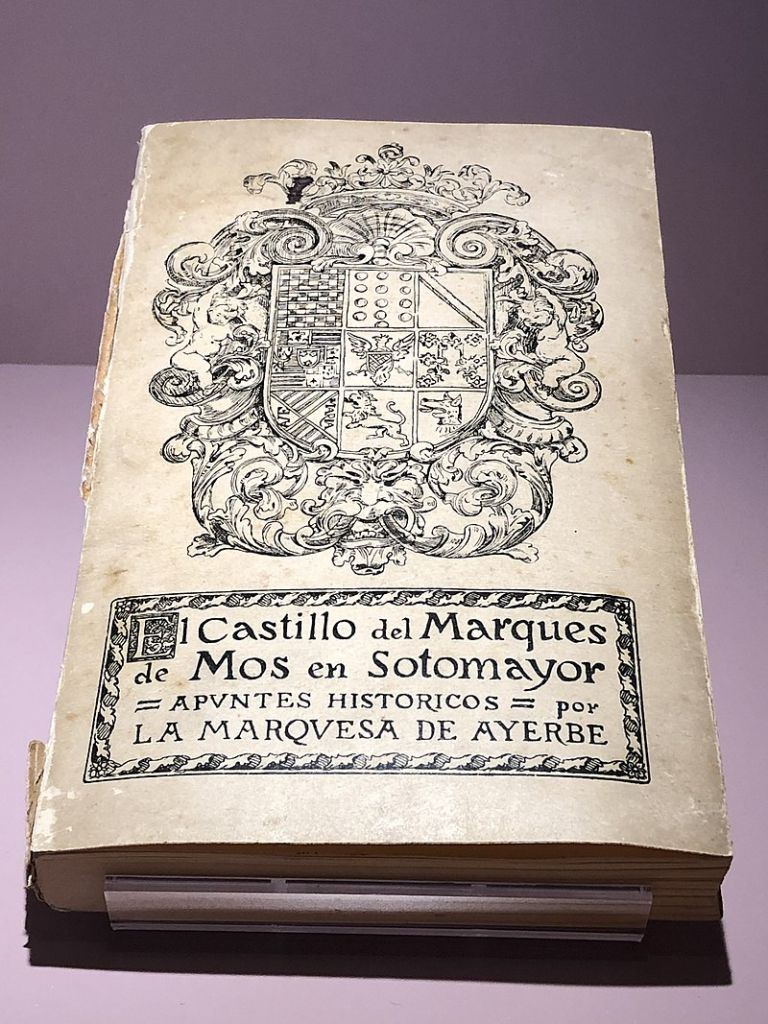 El Castillo del Marques
de Mos en Sotomayor
= APVNTES HISTORICOS = por
LA MARQVESA DE AYERBE